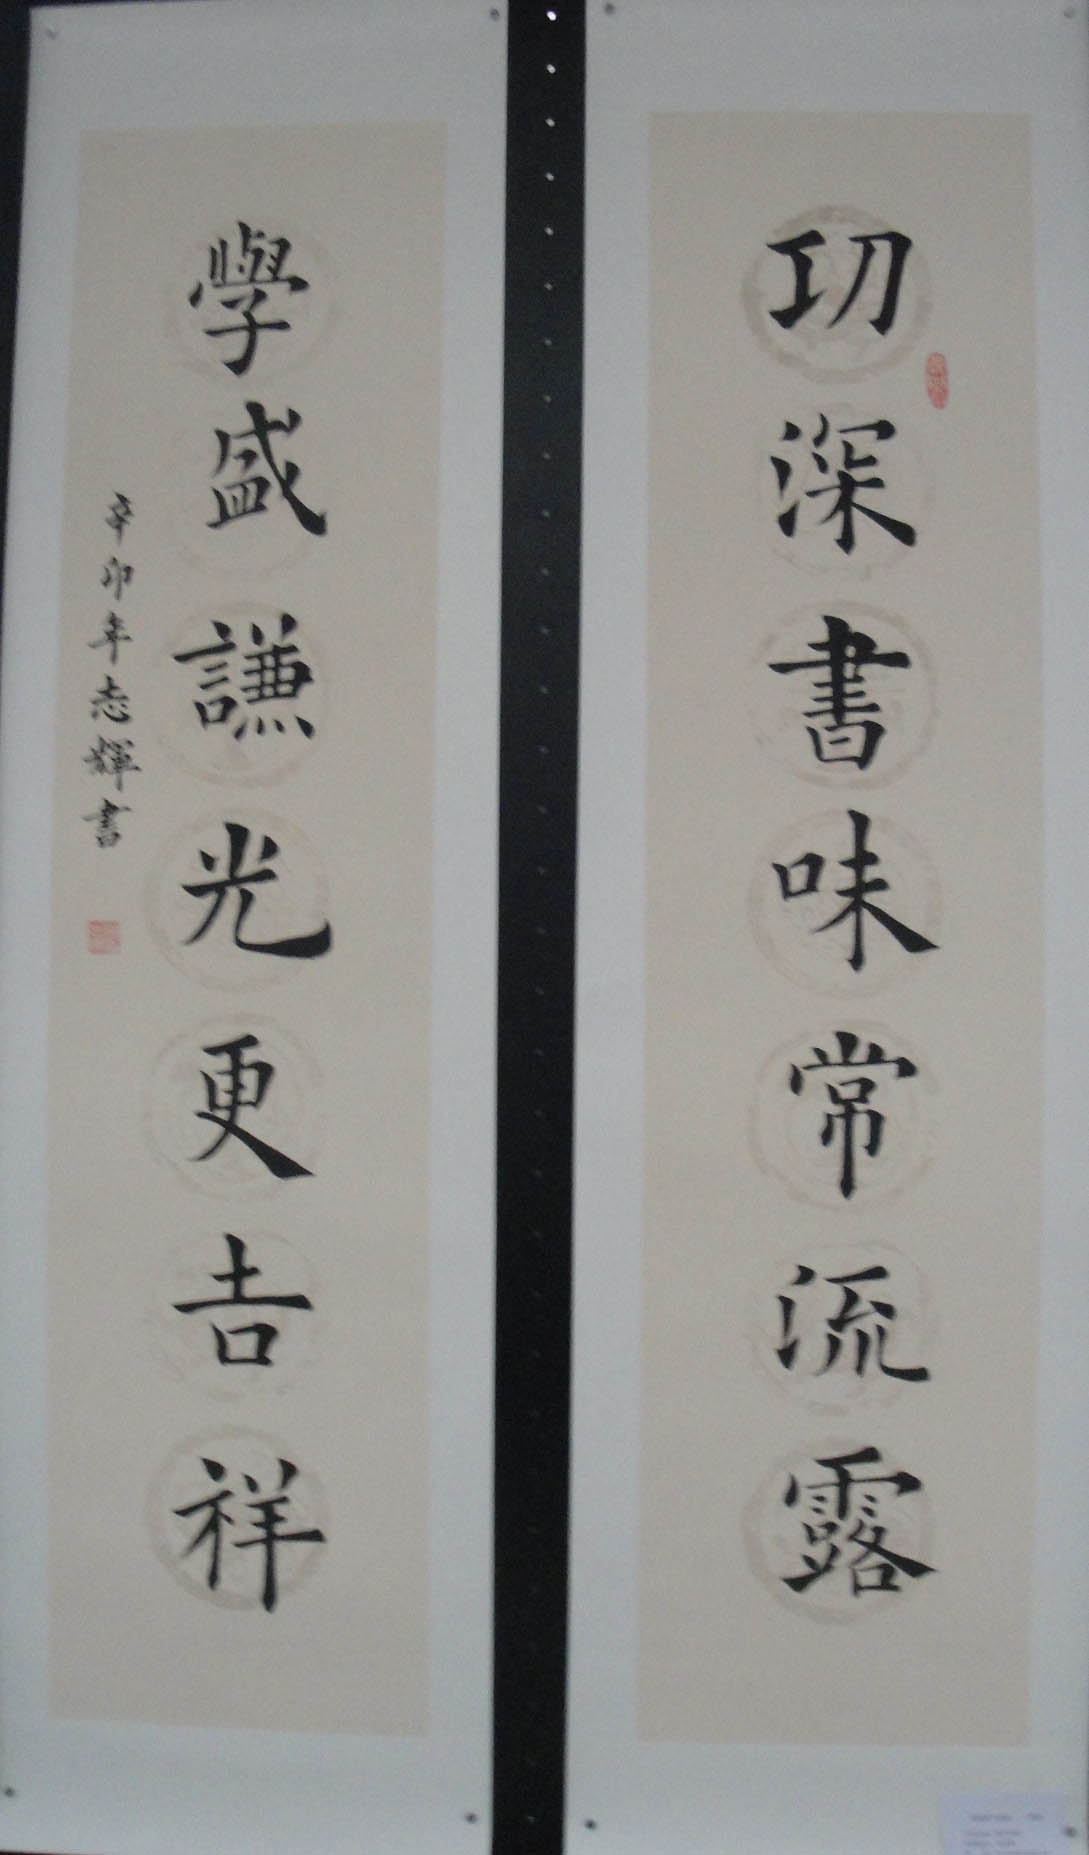 功深書味常流露
學盛謙光更吉祥
辛卯年志輝書